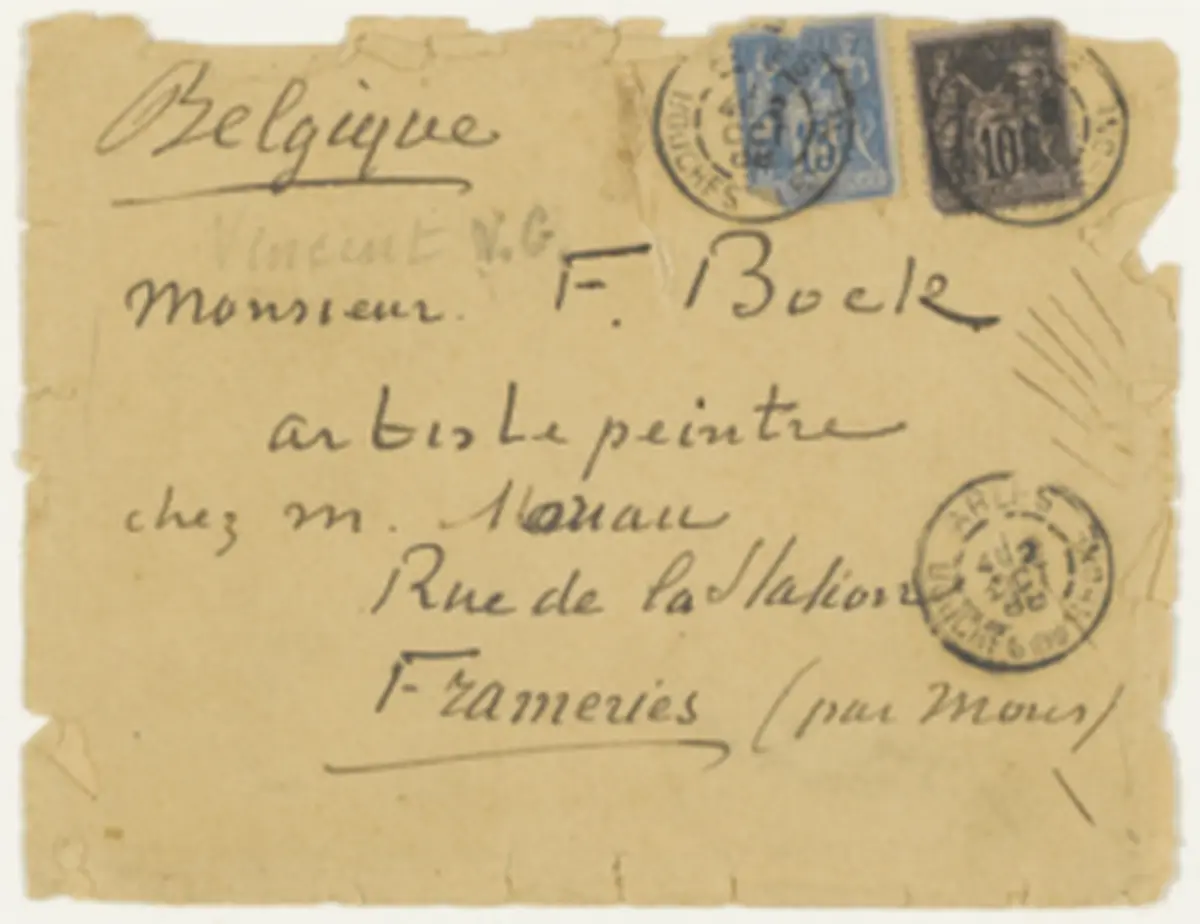 Belgique
15
10
Vincent V.G.
Monsieur. F. Bock
artiste peintre
chez m.
Rue de la Station
ARLES
BOUCHES DU RHONE
Frameries (par Mons)